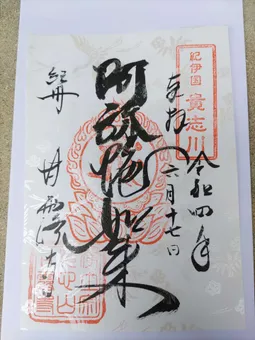 紀伊国 貴志川
奉拝
令和四年
六月十七日
阿弥陀如来
紀州